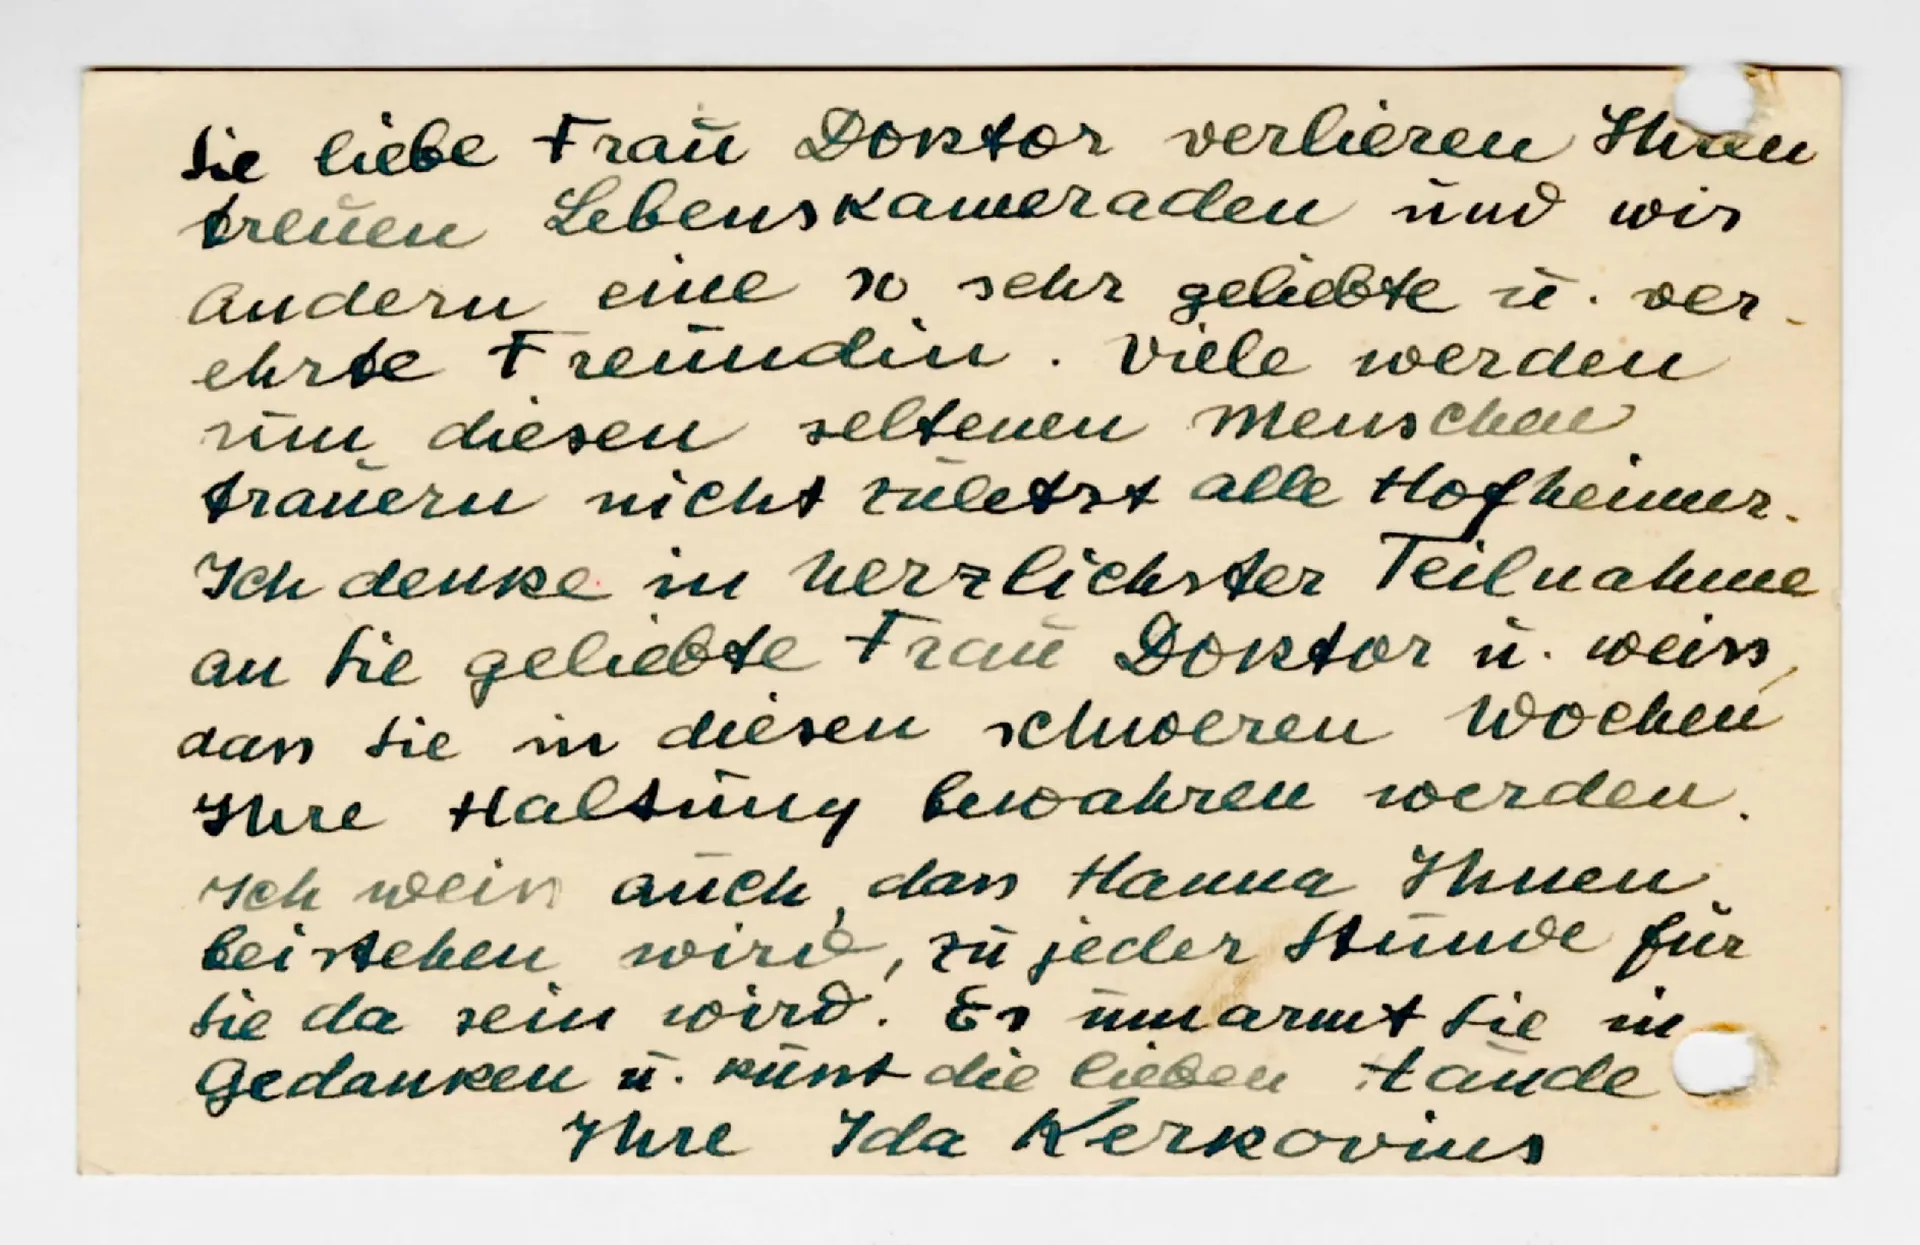 Sie liebe Frau Doktor verlieren Ihren
treuen Lebenskameraden und wir
andern eine so sehr geliebte u. ver-
ehrte Freundin. Viele werden
um diesen seltenen Menschen
trauern nicht zuletzt alle Hofheimer.
Ich denke in herzlichster Teilnahme
an Sie geliebte Frau Doktor u. weiss,
dass Sie in diesen schweren Wochen
Ihre Haltung bewahren werden.
Ich weiss auch, dass Hanna Ihnen
beistehen wird, zu jeder Stunde für
Sie da sein wird. Es umarmt Sie in
Gedanken u. küsst die lieben Hände
Ihre Ida Kerkovius